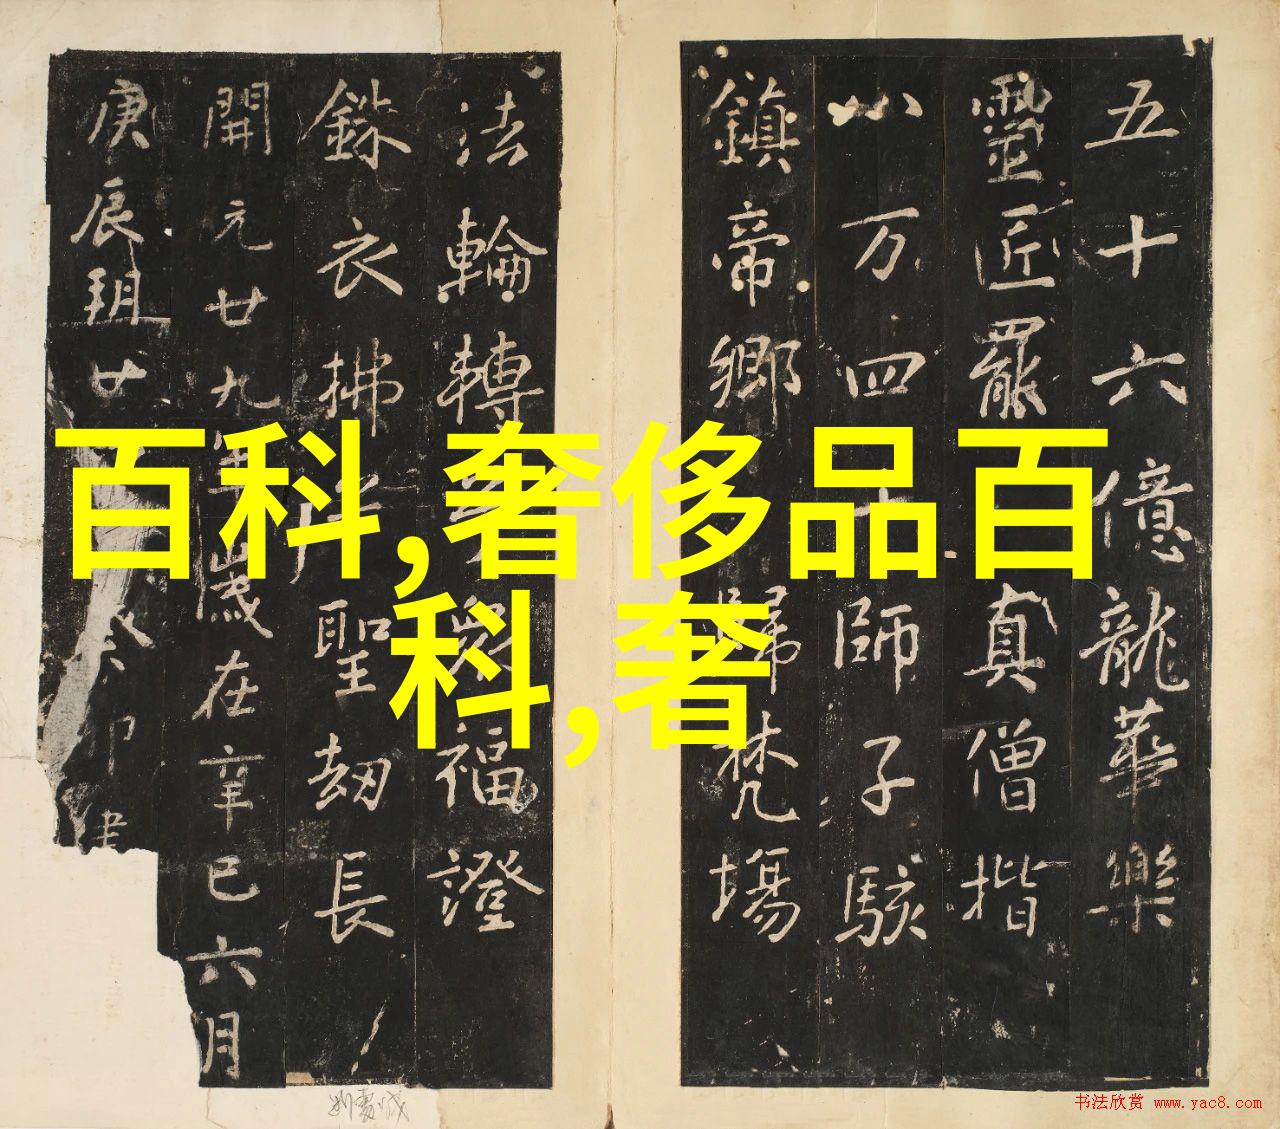 百科,奢侈品百
科,奢
五十六億龍華樂
靈匠罷真僧揩
八万四師子駭
鎮帝鄉歸梵場
法輪轉衆福證
銖衣拂聖劫長
開元廿九年歲在辛巳六月
庚辰玥廿癸卯建
书法欣赏 www.yac8.com